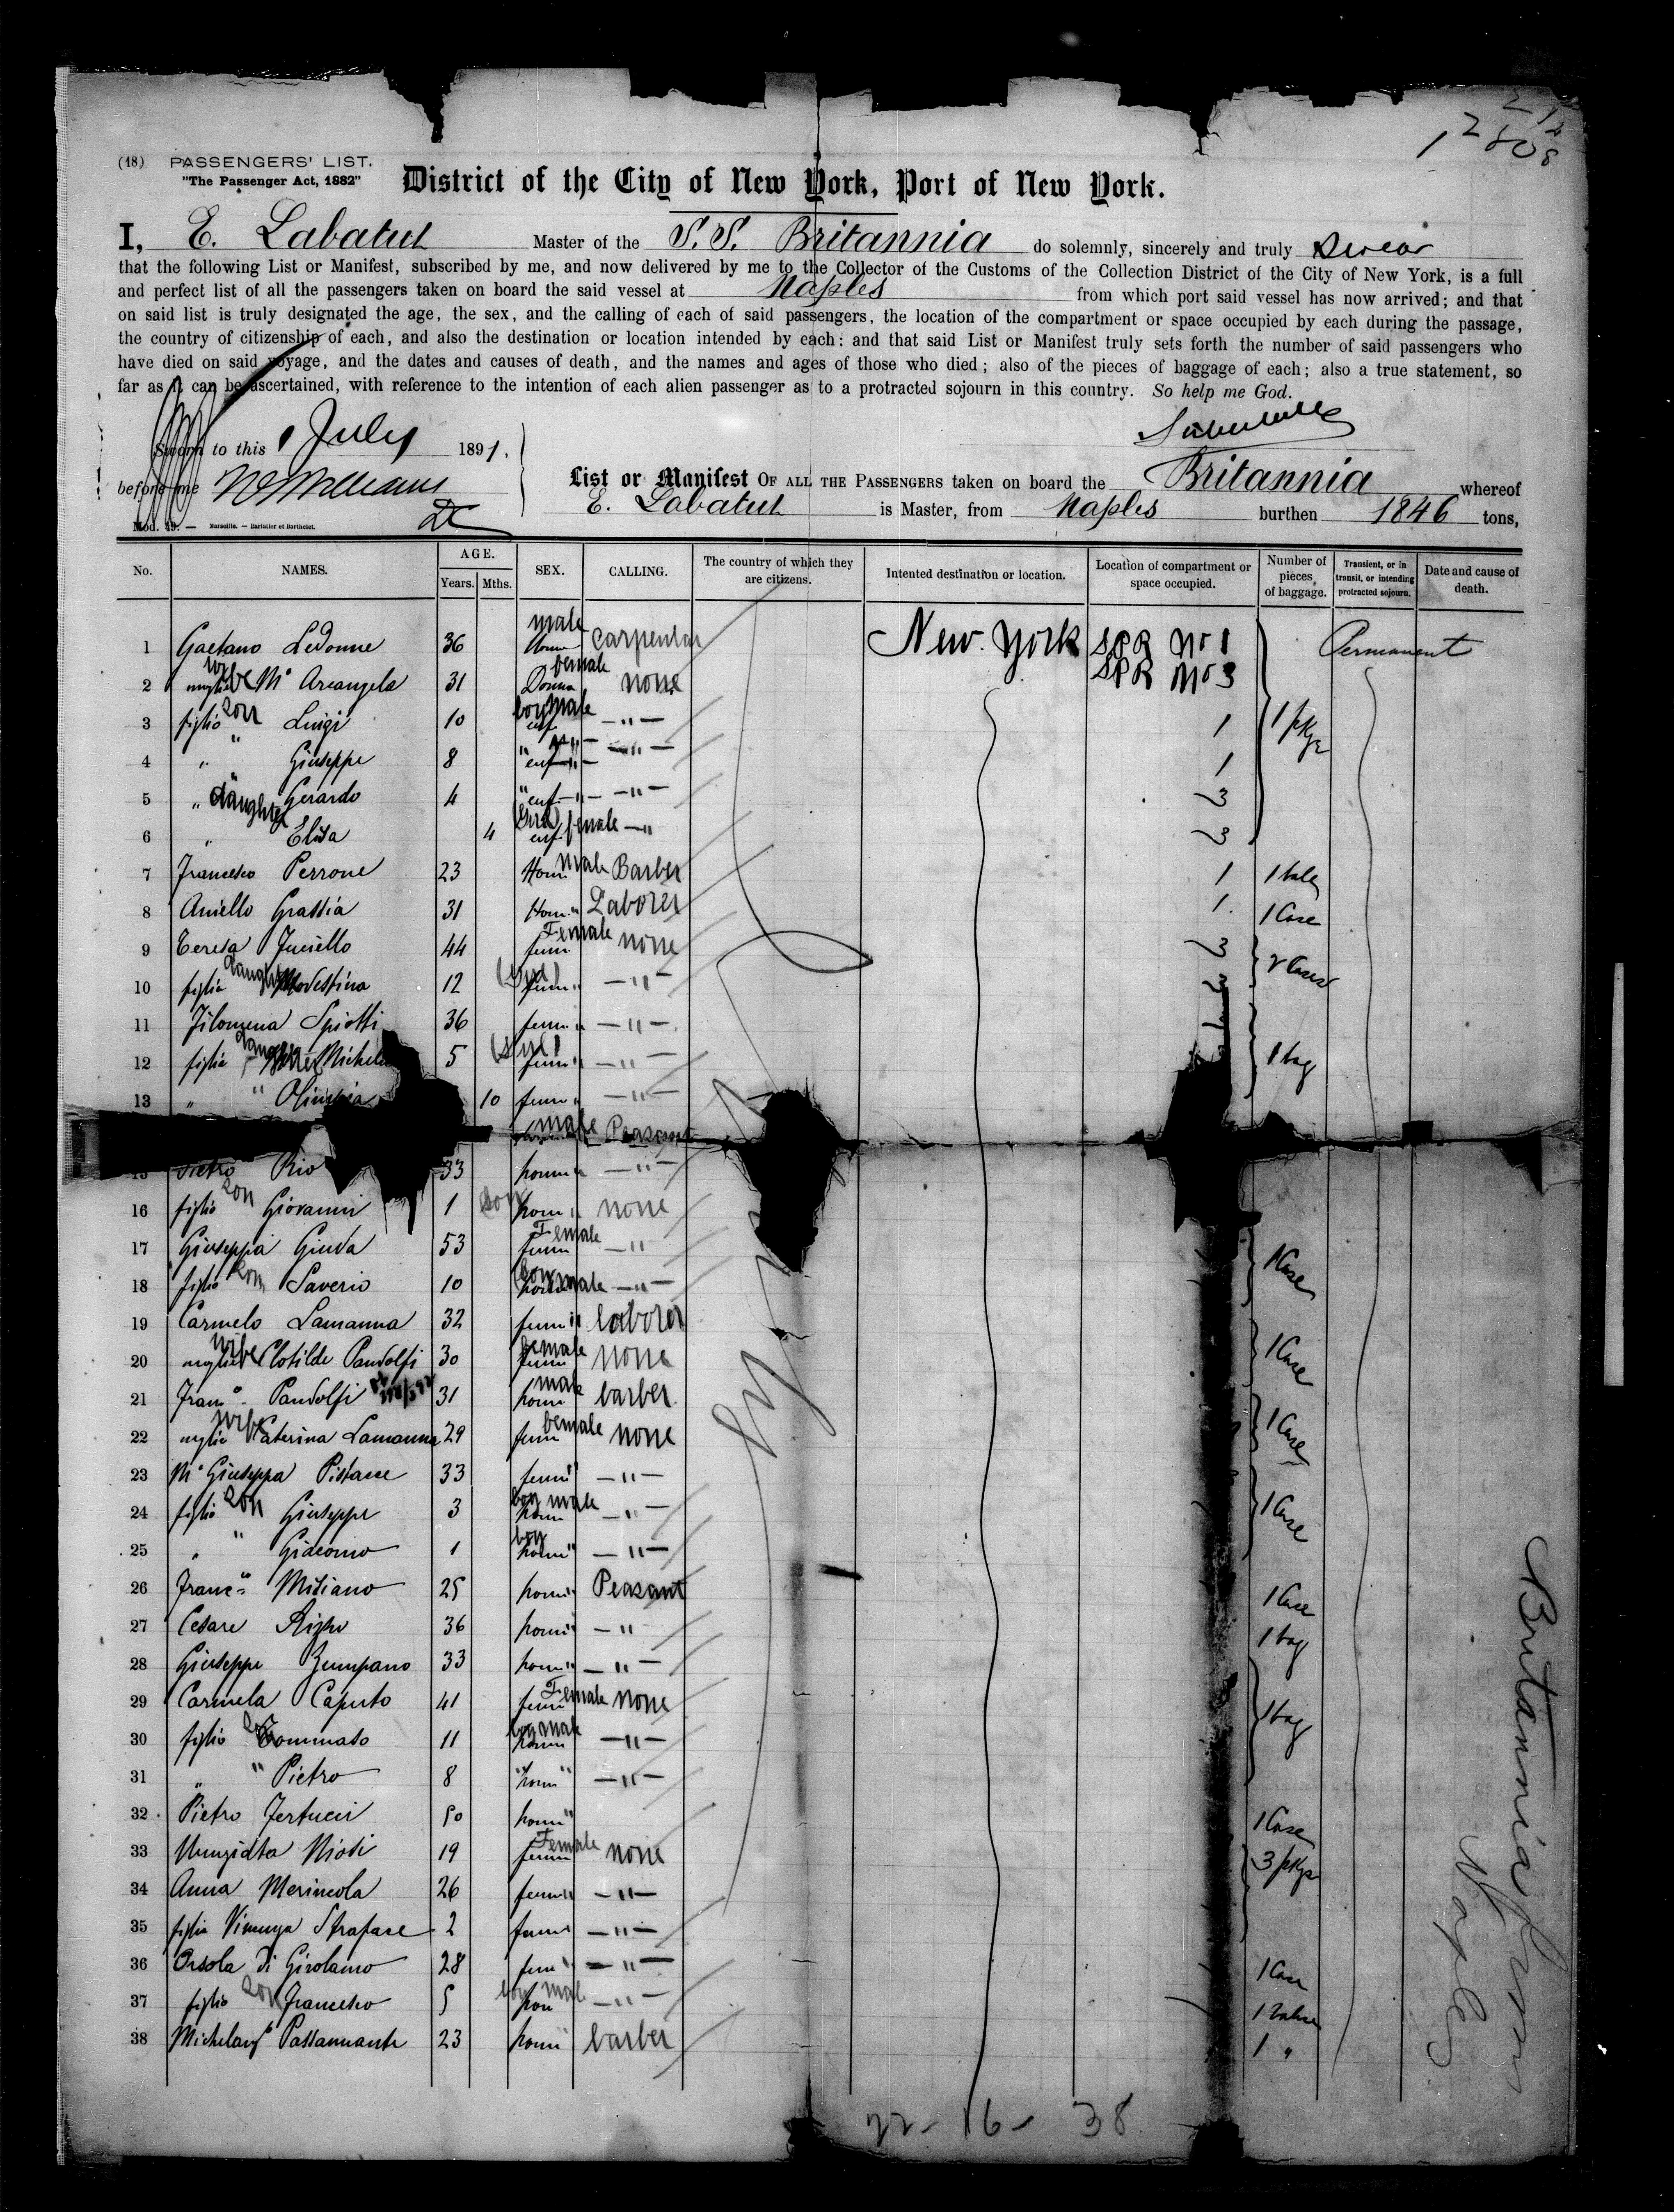 (18) PASSENGERS' LIST.
"The Passenger Act, 1882"
District of the City of New York, Port of New York.
I, E. Labatut Master of the S.S. Britannia do solemnly, sincerely and truly swear
that the following List or Manifest, subscribed by me, and now delivered by me to the Collector of the Customs of the Collection District of the City of New York, is a full
and perfect list of all the passengers taken on board the said vessel at Naples from which port said vessel has now arrived; and that
on said list is truly designated the age, the sex, and the calling of each of said passengers, the location of the compartment or space occupied by each during the passage,
the country of citizenship of each, and also the destination or location intended by each: and that said List or Manifest truly sets forth the number of said passengers who
have died on said voyage, and the dates and causes of death, and the names and ages of those who died; also of the pieces of baggage of each; also a true statement, so
far as it can be ascertained, with reference to the intention of each alien passenger as to a protracted sojourn in this country. So help me God.
Sworn to this 1 July 1891.
before me
List or Manifest OF ALL THE PASSENGERS taken on board the Britannia whereof
E. Labatut is Master, from Naples burthen 1846 tons,
Mod. 19. — Marseille. — Barlatier et Barthelet.
No. NAMES. AGE. Years. Mths. SEX. CALLING. The country of which they are citizens. Intented destination or location. Location of compartment or space occupied. Number of pieces of baggage. Transient, or in transit, or intending protracted sojourn. Date and cause of death.
1 Gaetano Ledonne 36 male carpenter New York SPR No 1 Permanent
2 moglie wife Ma Arcangela 31 Donna female none SPR No 3
3 figlio son Luigi 10 boy male enf. — " — 1 1 pkge
4 " " Giuseppe 8 " enf — " — 1
5 " " Gerardo 4 " enf — " — 3
6 " daughter Elisa 4 Girl female enf — " 3
7 Francesco Perrone 23 Hom male Barber 1 1 bale
8 Aniello Grassia 31 Hom " Laborer 1 1 Case
9 Teresa 44 Female fem none 3
10 figlia daughter Modestina 12 (girl) fem " — " — 3 2 Cases
11 Filomena Spiotti 36 fem " — " — 3
12 figlia daughter 5 (girl) fem " — " — 1 bag
13 " " Olimpia 10 fem " — " —
male Peasant
15 Pietro 33 hom " — " —
16 figlio son Giovanni 1 boy hom " none
17 Giuseppa 53 Female fem — "
18 figlio son Saverio 10 boy male — " — 1 Case
19 Carmelo Lamanna 32 fem " laborer
20 moglie wife Clotilde Pandolfi 30 female fem none 1 Case
21 Franco Pandolfi 31 male hom barber
22 moglie wife Caterina Lamanna 29 female fem none 1 Case
23 Ma Giuseppa 33 fem " — " —
24 figlio son Giuseppe 3 boy male hom — " — 1 Case
25 " " Giacomo 1 boy hom " — " —
26 Franco Misiano 25 hom " Peasant 1 Case
27 Cesare 36 hom " — " 1 bag
28 Giuseppe Zumpano 33 hom " — " —
29 Carmela Caputo 41 Female fem none
30 figlio son Tommaso 11 boy male hom — " — 1 bag
31 " " Pietro 8 " hom " — " —
32 Pietro 50 hom " 1 Case
33 Nunziata 19 Female fem none 3 pkgs
34 Anna 26 fem " — " —
35 figlia 2 fem " — " —
36 Orsola Di Girolamo 28 fem " — " — 1 Case
37 figlio son Francesco 5 boy male hom — " —
38 Passannante 23 hom " barber 1 "
22 - 16 - 38
Britannia from
Naples